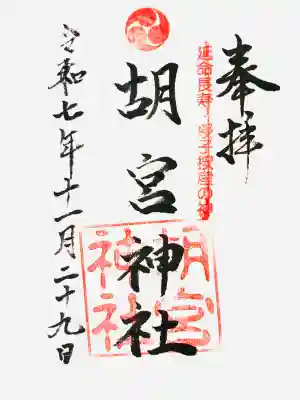 奉拝
延命長寿・男子授産の神
胡宮神社
胡宮
神社
令和七年十一月二十九日